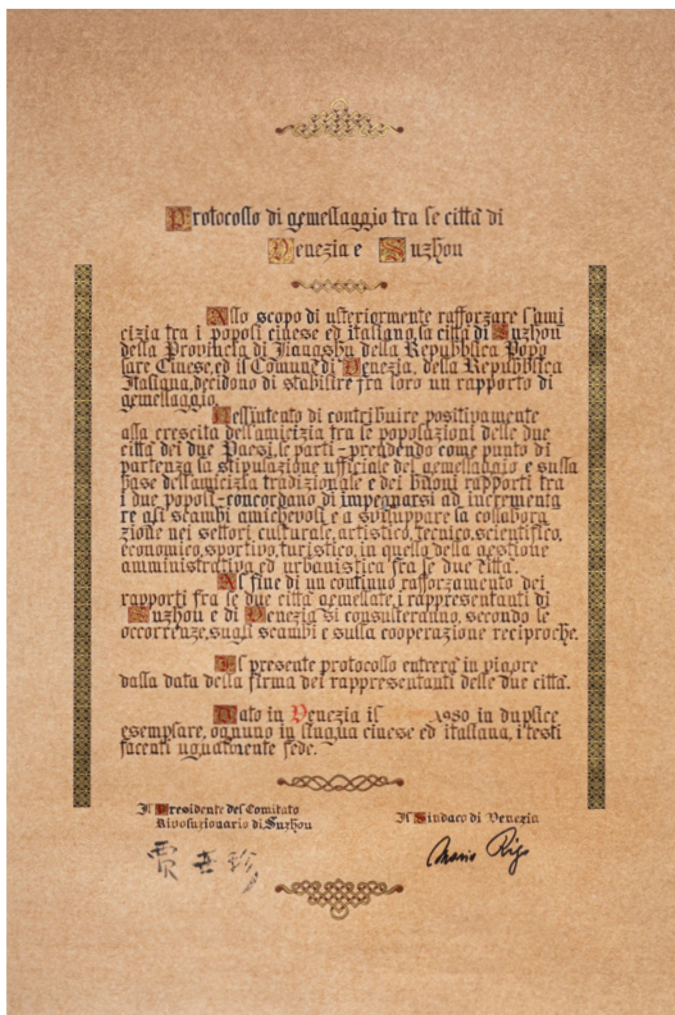 Protocollo di gemellaggio tra le città di
Venezia e Suzhou
Allo scopo di ulteriormente rafforzare l'ami
cizia tra i popoli cinese ed italiano, la città di Suzhou
della Provincia di Jiangshu della Repubblica Popo
lare Cinese, ed il Comune di Venezia, della Repubblica
Italiana, decidono di stabilire fra loro un rapporto di
gemellaggio.
Nell'intento di contribuire positivamente
alla crescita dell'amicizia tra le popolazioni delle due
città dei due Paesi, le parti - prendendo come punto di
partenza la stipulazione ufficiale del gemellaggio e sulla
base dell'amicizia tradizionale e dei buoni rapporti tra
i due popoli - concordano di impegnarsi ad incrementa
re gli scambi amichevoli e a sviluppare la collabora
zione nei settori culturale, artistico, tecnico, scientifico,
economico, sportivo, turistico, in quello della gestione
amministrativa ed urbanistica fra le due città.
Al fine di un continuo rafforzamento dei
rapporti fra le due città gemellate, i rappresentanti di
Suzhou e di Venezia si consulteranno, secondo le
occorrenze, sugli scambi e sulla cooperazione reciproche.
Il presente protocollo entrerà in vigore
dalla data della firma dei rappresentanti delle due città.
Dato in Venezia il 1980 in duplice
esemplare, ognuno in lingua cinese ed italiana, i testi
facenti ugualmente fede.
Il Presidente del Comitato
Rivoluzionario di Suzhou
Il Sindaco di Venezia
贾 珍
Mario Rigo